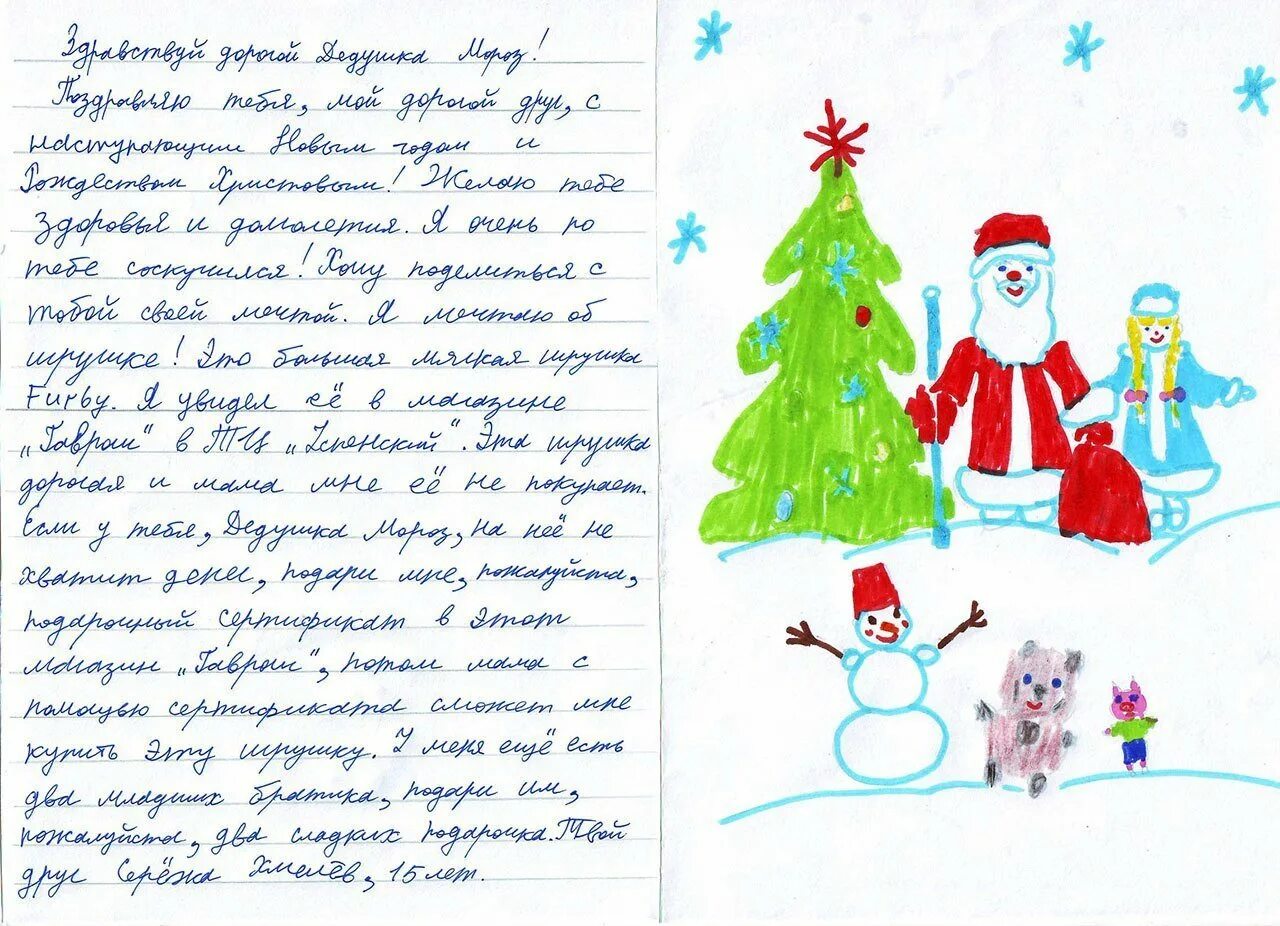 Здравствуй дорогой Дедушка Мороз!
Поздравляю тебя, мой дорогой друг, с
наступающим Новым годом и
Рождеством Христовым! Желаю тебе
здоровья и долголетия. Я очень по
тебе соскучился! Хочу поделиться с
тобой своей мечтой. Я мечтаю об
игрушке! Это большая мягкая игрушка
Furby. Я увидел её в магазине
„Гавроши" в ТЦ „Успенский". Эта игрушка
дорогая и мама мне её не покупает.
Если у тебя, Дедушка Мороз, на неё не
хватит денег, подари мне, пожалуйста,
подарочный сертификат в этот
магазин „Гавроши", потом мама с
помощью сертификата сможет мне
купить эту игрушку. У меня ещё есть
два младших братика, подари им,
пожалуйста, два сладких подарочка. Твой
друг Серёжа Хмелёв, 15 лет.